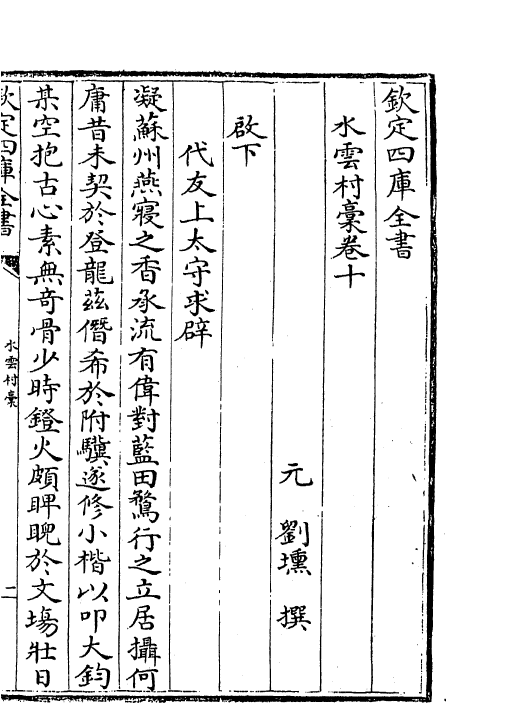 欽定四庫全書
水雲村藁卷十
元　劉壎　撰
啟下
代友上太守求辟
凝蘇州燕寢之香承流有偉對藍田鶩行之立居攝何
庸昔未契於登龍兹僭希於附驥遂修小楷以叩大鈞
某空抱古心素無竒骨少時鐙火頗睥睨於文塲壯日
欽定四庫全書
水雲村藁